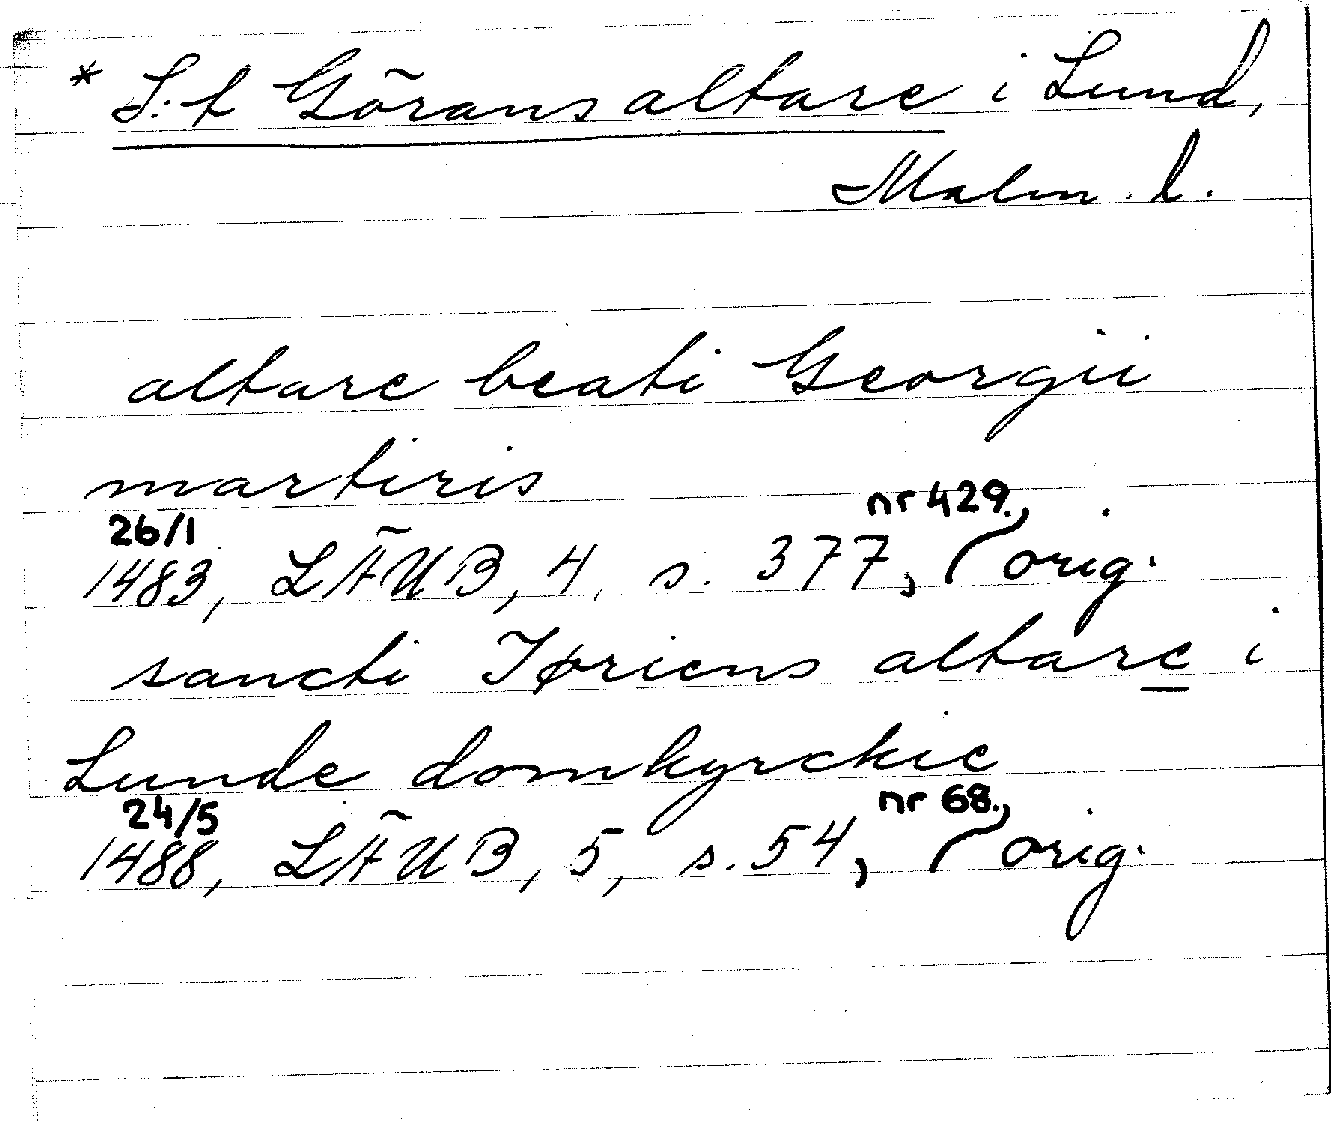 * S:t Görans altare i Lund,
Malm. l.
altare beati Georgii
martiris
26/1
1483, LÄUB, 4, s. 377, nr 429., orig.
sancti Iøriens altare i
Lunde domkyrckie
24/5
1488, LÄUB, 5, s. 54, nr 68., orig.